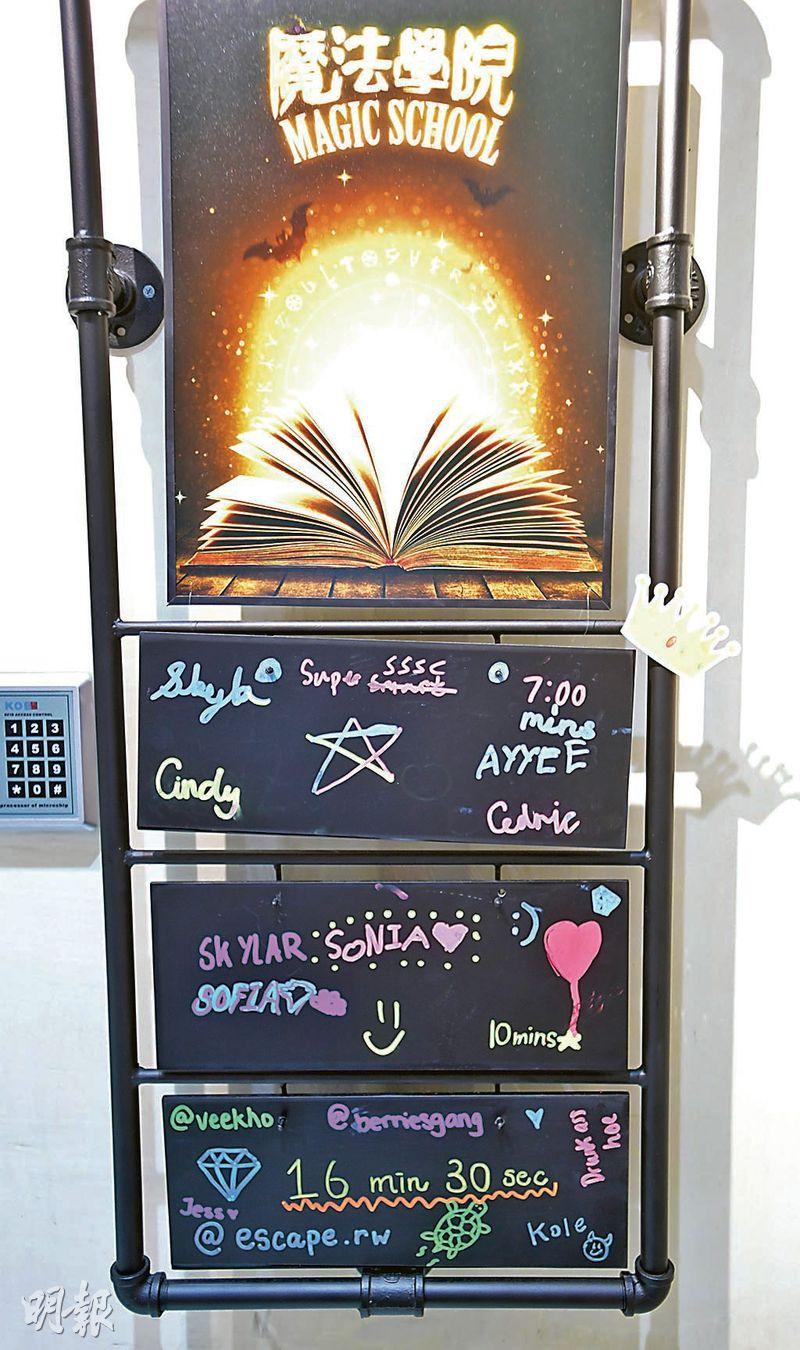 魔法學院
MAGIC SCHOOL
Skyla
Super SSSC
7:00
mins
AYYEE
Cindy
Cedric
SKYLAR
SONIA
SOFIA
:)
10mins
@veekho
@berriesgang
16 min 30 sec
Jess
@escape.rw
Kole
KOB
RFID ACCESS CONTROL
1 2 3
4 5 6
7 8 9
* 0 #
processor of microchip
明報